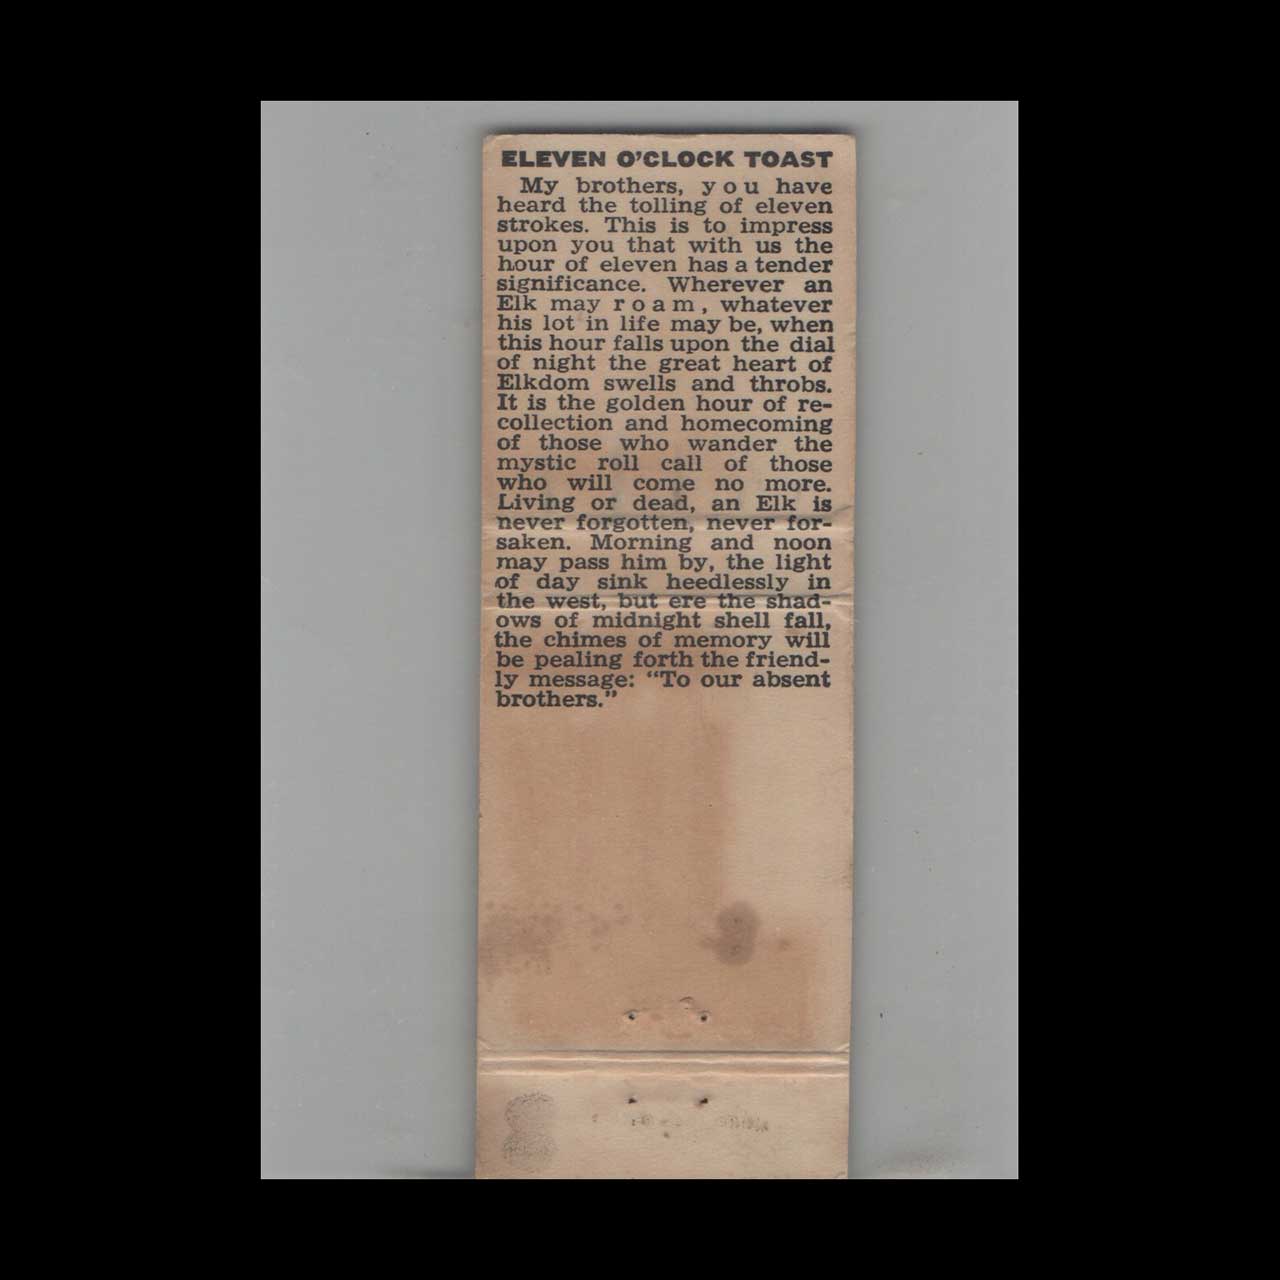 ELEVEN O'CLOCK TOAST
My brothers, you have
heard the tolling of eleven
strokes. This is to impress
upon you that with us the
hour of eleven has a tender
significance. Wherever an
Elk may roam, whatever
his lot in life may be, when
this hour falls upon the dial
of night the great heart of
Elkdom swells and throbs.
It is the golden hour of re-
collection and homecoming
of those who wander the
mystic roll call of those
who will come no more.
Living or dead, an Elk is
never forgotten, never for-
saken. Morning and noon
may pass him by, the light
of day sink heedlessly in
the west, but ere the shad-
ows of midnight shell fall,
the chimes of memory will
be pealing forth the friend-
ly message: “To our absent
brothers.”